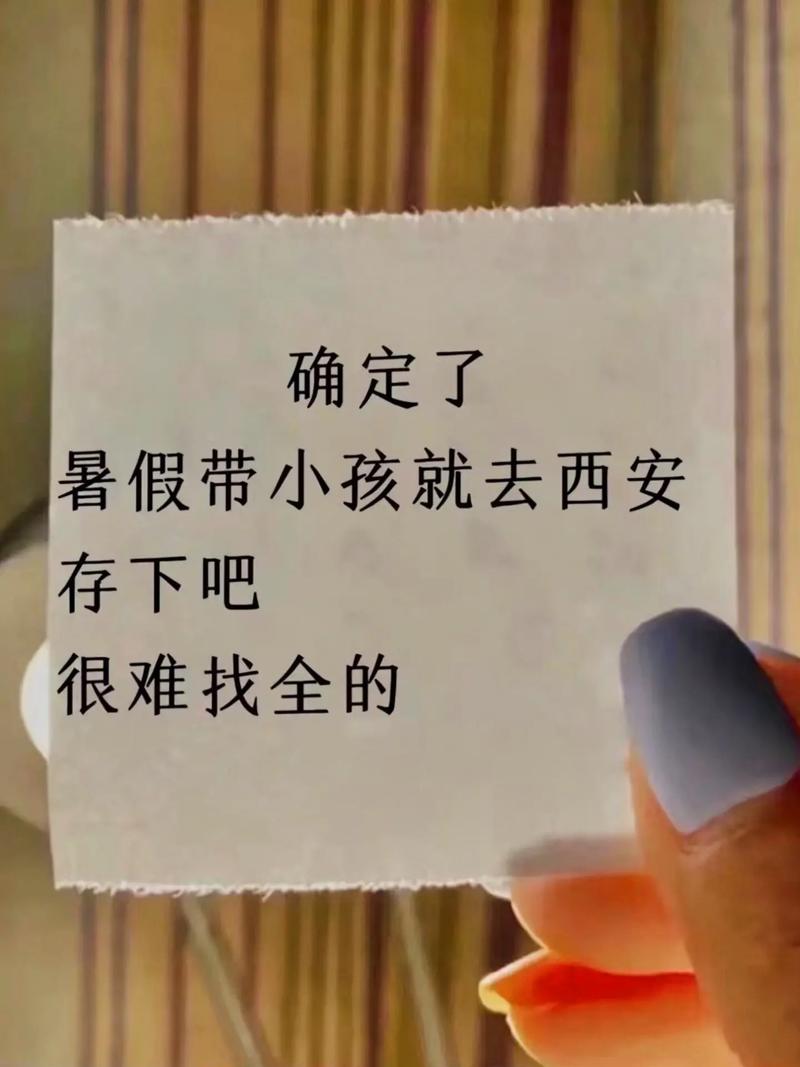 确定了
暑假带小孩就去西安
存下吧
很难找全的